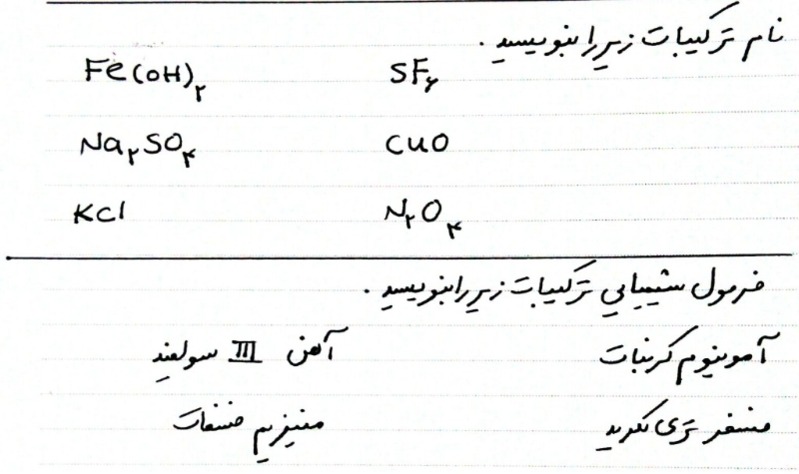 نام ترکیبات زیر را بنویسید .
Fe(OH)₂ SF₆
Na₂SO₄ CuO
KCl N₂O₄
فرمول شیمیایی ترکیبات زیر را بنویسید .
آمونیوم کربنات آهن III سولفید
فسفر تری کلرید منیزیم فسفات